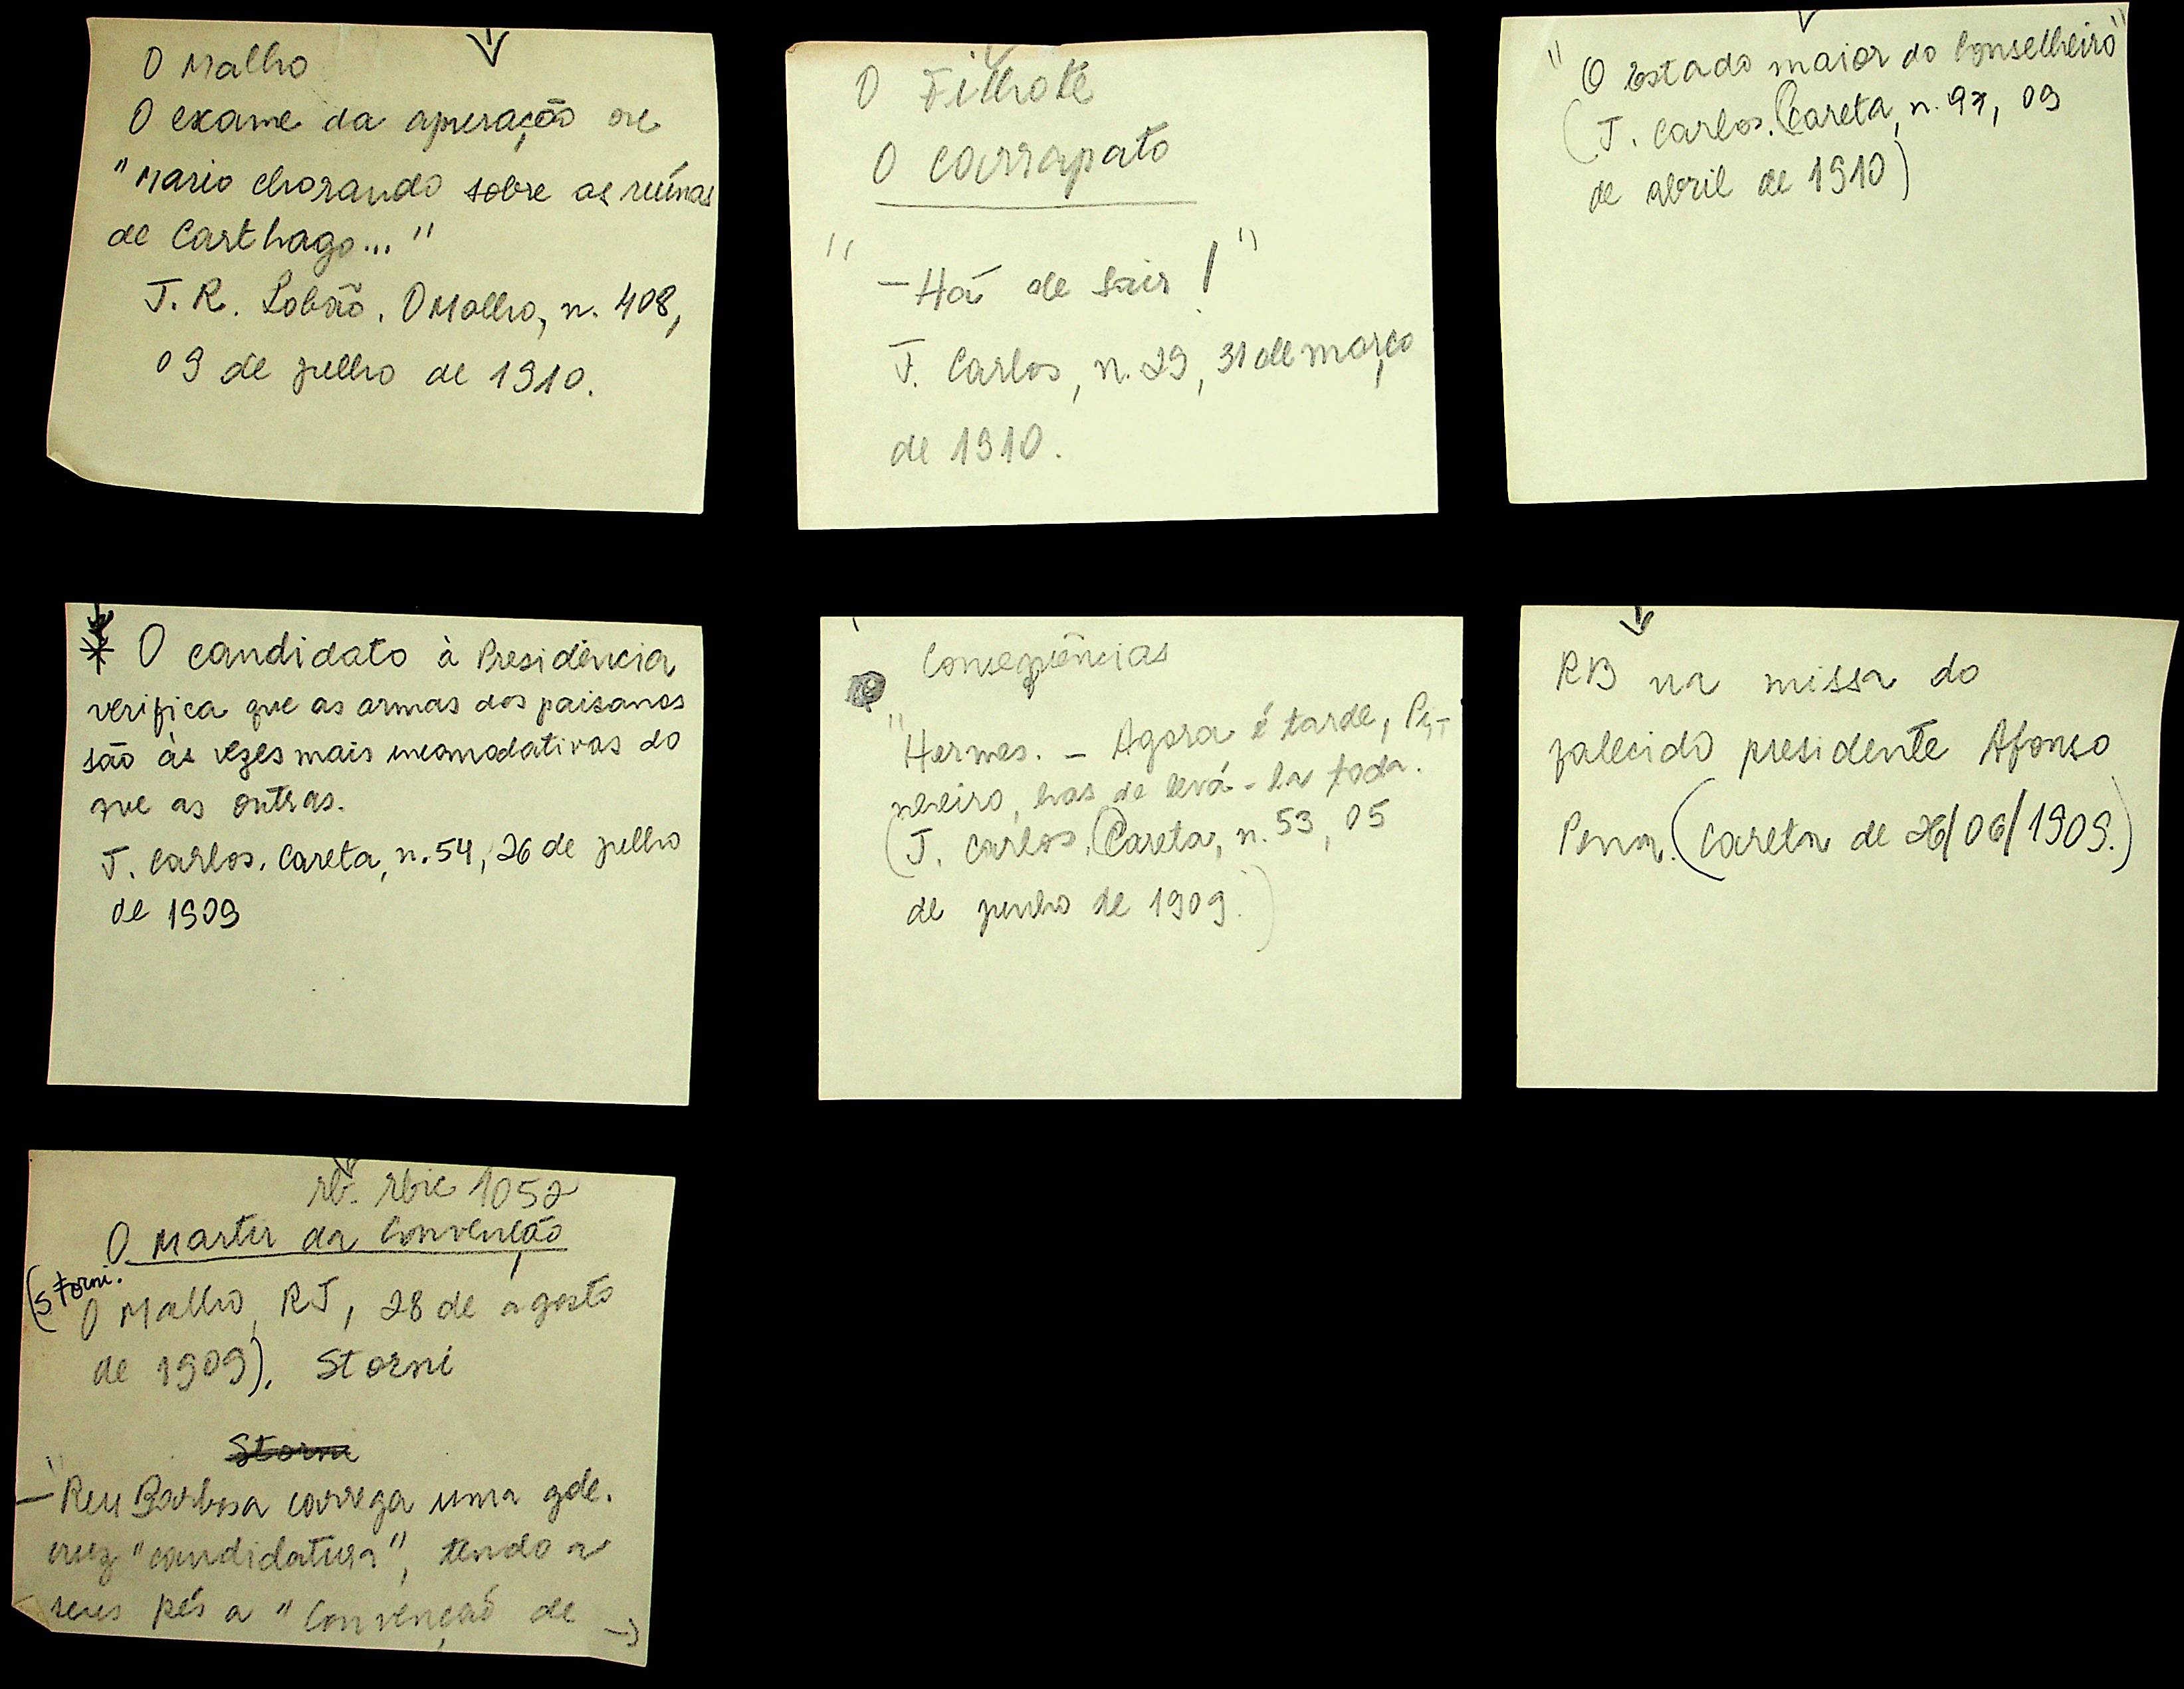 O Malho
O exame da apuração ou
"Mario chorando sobre as ruínas
de Carthago..."
J. R. Lobão. O Malho, n. 408,
09 de julho de 1910.
O Filhote
O Carrapato
"—Há de sair!"
J. Carlos, n. 29, 31 de março
de 1910.
"O Estado maior do Conselheiro"
(J. Carlos. Careta, n. 97, 09
de abril de 1910)
* O candidato à Presidência
verifica que as armas dos paisanos
são às vezes mais incomodativas do
que as outras.
J. Carlos. Careta, n. 54, 26 de julho
de 1909
Conseqüências
"Hermes. — Agora é tarde, Pi-
nheiro, has de levá-la toda.
(J. Carlos. (Careta, n. 53, 05
de junho de 1909.)
RB na missa do
falecido presidente Afonso
Pena. (Careta de 26/06/1909.)
rb. rbic 1052
O Martir da Convenção
(Storni.
O Malho, RJ, 28 de agosto
de 1909). Storni
Storni
"— Ruy Barbosa carrega uma gde.
cruz "candidatura", tendo a
seus pés a "Convenção de →